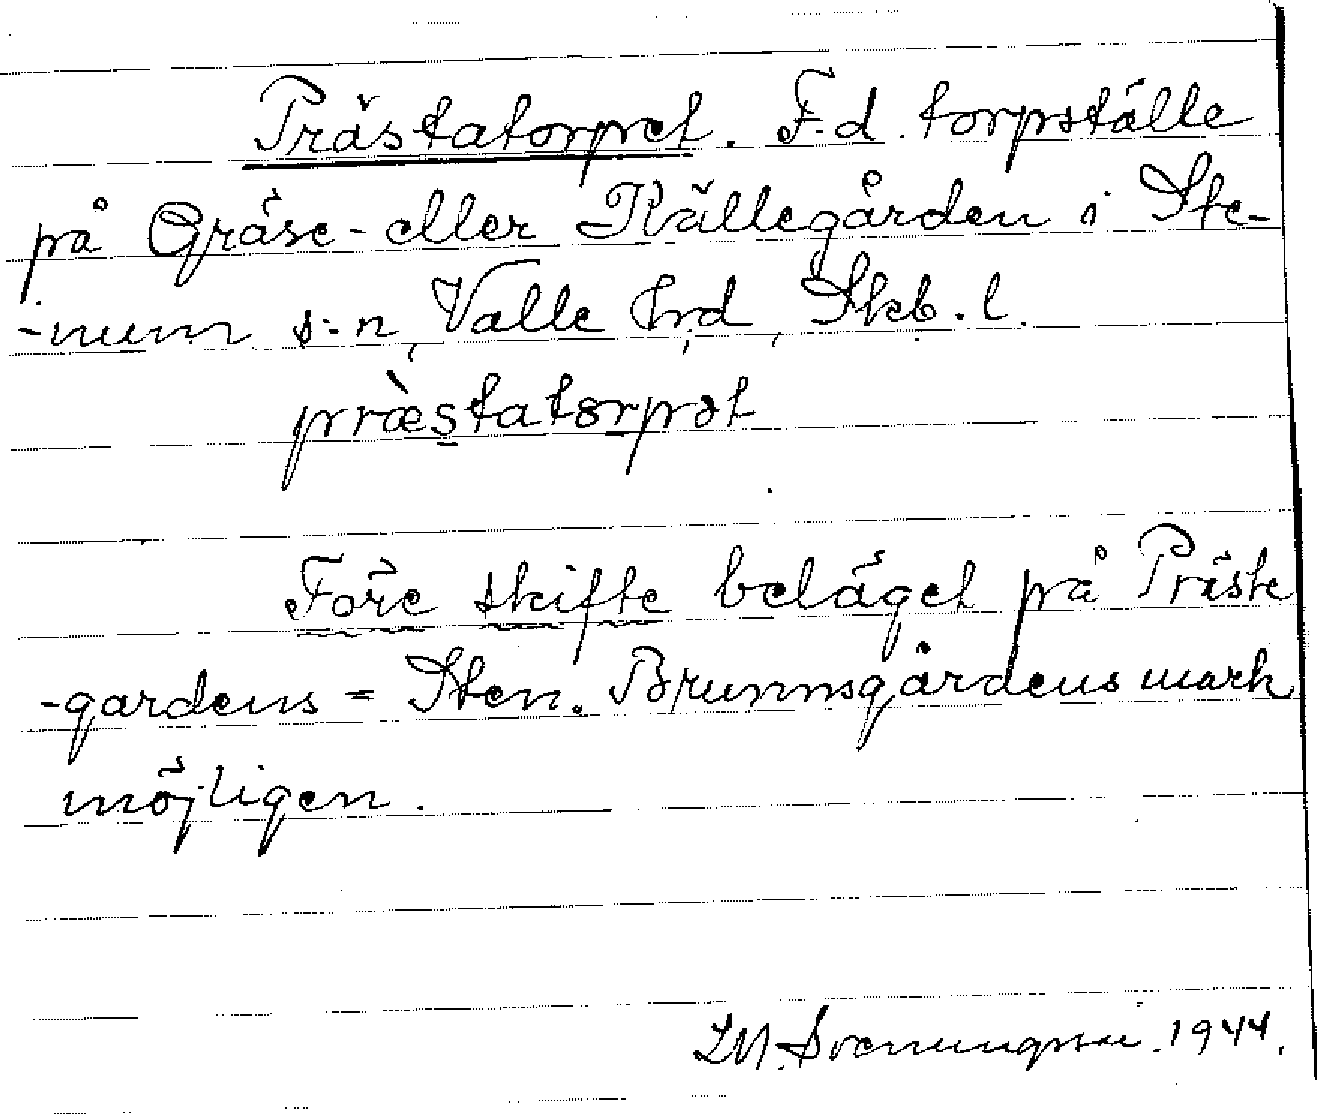 Prästatorpet. F.d. torpställe
på Gräse- eller Källegården i Ste-
-num s:n, Valle hrd, Skb. l.
præ̀statorpət
Före skifte beläget på Präste
-gardens = Sten. Brunnsgårdens mark
möjligen.
Svenungsson. 1944.